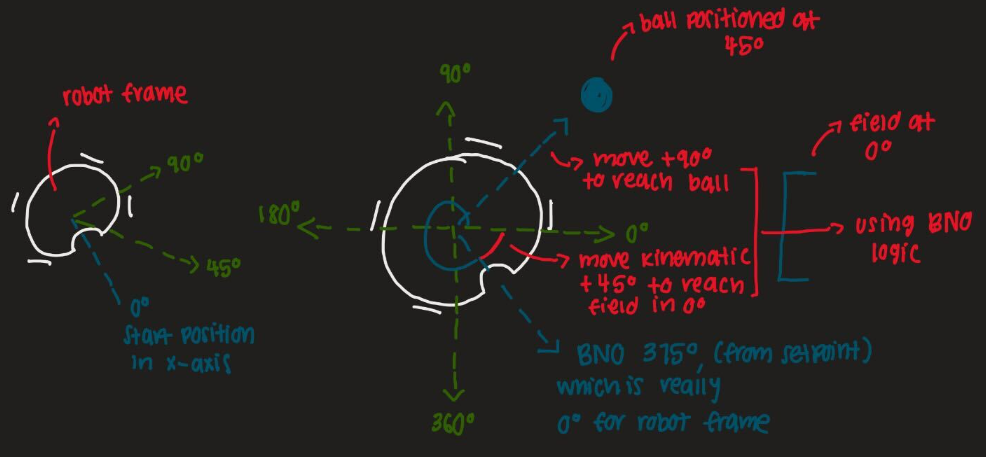 robot frame
90°
45°
0°
start position
in x-axis
ball positioned at
45°
90°
180°
0°
360°
move +90°
to reach ball
move kinematic
+45° to reach
field in 0°
field at
0°
using BNO
logic
BNO 315°, (from setpoint)
which is really
0° for robot frame